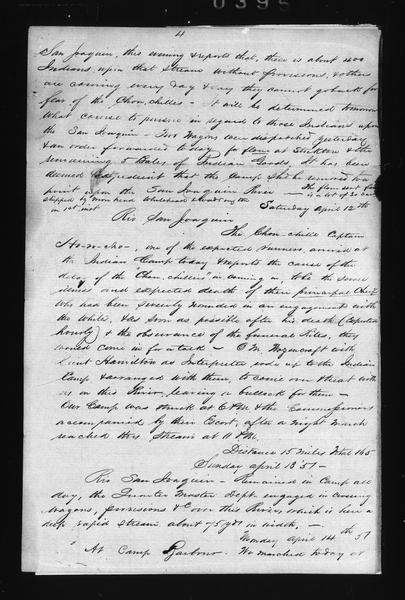 0395
4
San Joaquin, this evening & reports that, there is about 400
Indians, upon that stream without provisions, & others
are coming every day & say they cannot go back for
fear of the Chon-chilles - It will be determined tomorrow
what course to pursue in regard to those Indians upon
the San Joaquin - Two Wagons were dispatched yesterday
& an order forwarded to day for flour at Stockton & the
remaining 5 Bales of Indian Goods, It has been
deemed expedient that the Camp Shd be removed to a
point upon the San Joaquin River - The flour sent for
is a lot of
shipped by
in 1st inst.
Saturday April 12th
Rio San Joaquin
The Chon-chille Captain
Ho-no-ho-, one of the expected runners, arrived at
the Indian Camp today & reports the cause of the
delay of the "Chon-chilles" in coming in, to be the severe
illness and expected death of their principal Chief
who had been severely wounded in an engagement with
the Whites, & as soon as possible after his death (expected
hourly) & the observance of the funeral Rites, they
would come in for a talk - O.M. Wozencraft with
Lieut Hamilton as Interpreter rode up to the Indian
Camp & arranged with them, to come over & treat with
us on this River, leaving a bullock for them -
Our Camp was struck at 6 P.M. & the Commissioners
accompanied by their Escort, after a night march
reached this Stream at 11 P.M.
Distance 15 miles Total 165
Sunday April 13 '51 -
Rio San Joaquin - Remained in Camp all
day, the Quarter Master Dept. engaged in crossing
wagons, provisions &c over this River, which is here a
deep rapid stream about 75 yds in width. -
Monday April 14th 51
At Camp Barbour. We marched to day at